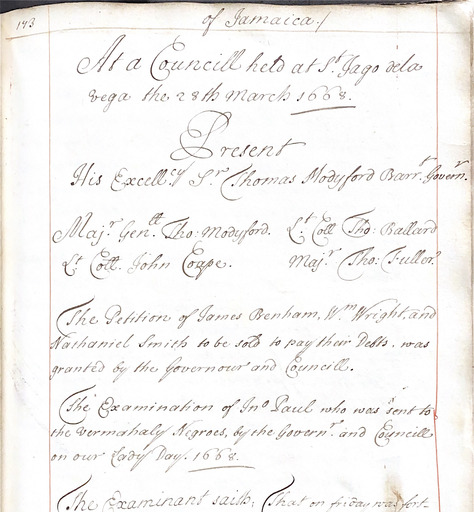 143
of Jamaica./
At a Councill held at St. Jago dela
vega the 28th March 1668.
Present
His Excellcy Sr. Thomas Modyford Barrt. Governr.
Majr. Genll. Tho: Modyford. Lt. Coll Tho: Ballard
Lt. Coll. John Coape. Majr. Tho: Fuller.
The Petition of James Benham, Wm. Wright, and
Nathaniel Smith to be sold to pay their Debts. was
granted by the Governour and Councill.
The Examination of Jno. Paul who was sent to
the vermahaly Negroes, by the Governr. and Councill
on our Lady Day. 1668.
The Examinant saith; That on friday was fort-